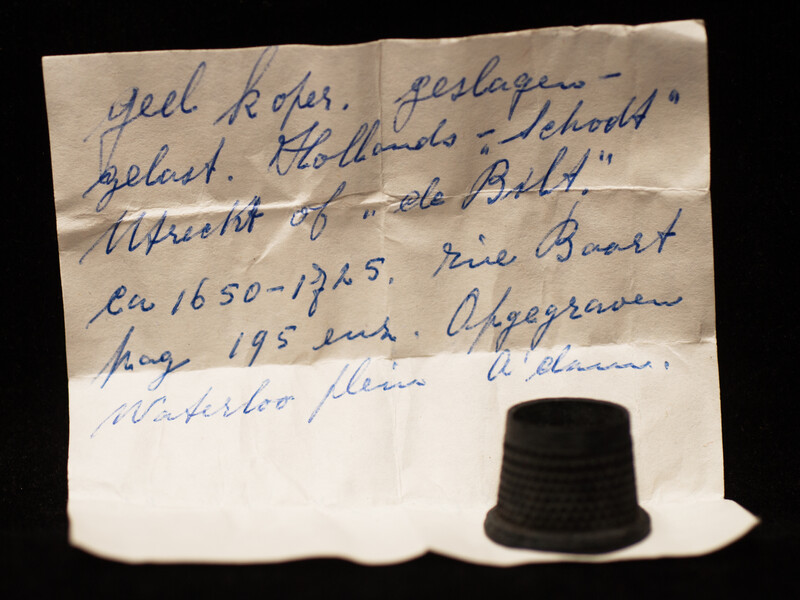 geel koper. geslagen -
gelast. Hollands - "Schodt"
Utrecht of "de Bilt."
ca 1650-1725. zie Baart
pag 195 enz. Opgegraven
Waterloo plein A'dam.